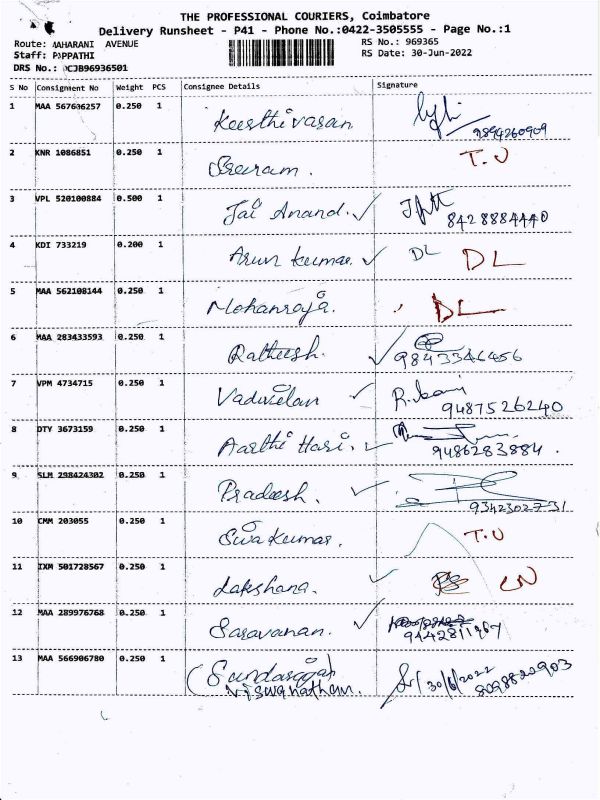 THE PROFESSIONAL COURIERS, Coimbatore
Delivery Runsheet - P41 - Phone No.:0422-3505555 - Page No.:1
Route: MAHARANI AVENUE
RS No.: 969365
Staff: PAPPATHI
RS Date: 30-Jun-2022
DRS No.: CJB96936501
S No Consignment No Weight PCS Consignee Details Signature
1 MAA 567606257 0.250 1 Keerthivasan 9894260909
2 KNR 1086851 0.250 1 Sreeram. T.U
3 VPL 520100884 0.500 1 Jai Anand. 8428884440
4 KDI 733219 0.200 1 Arun kumar. DL DL
5 MAA 562108144 0.250 1 Mohanraja. DL
6 MAA 283433593 0.250 1 Ratheesh. 9843346456
7 VPM 4734715 0.250 1 Vadivelan R. 9487526240
8 DTY 3673159 0.250 1 Aarthi Hari. 9486283884.
9 SLM 298424302 0.250 1 Pradeesh. 9342302731
10 CMM 203055 0.250 1 Siva Kumar. T.U
11 IXM 501728567 0.250 1 Lakshana. CN
12 MAA 289976768 0.250 1 Saravanan. 9442811967
13 MAA 566906780 0.250 1 (Sundarajan 30/6/2022
Viswanathan. 8098820903